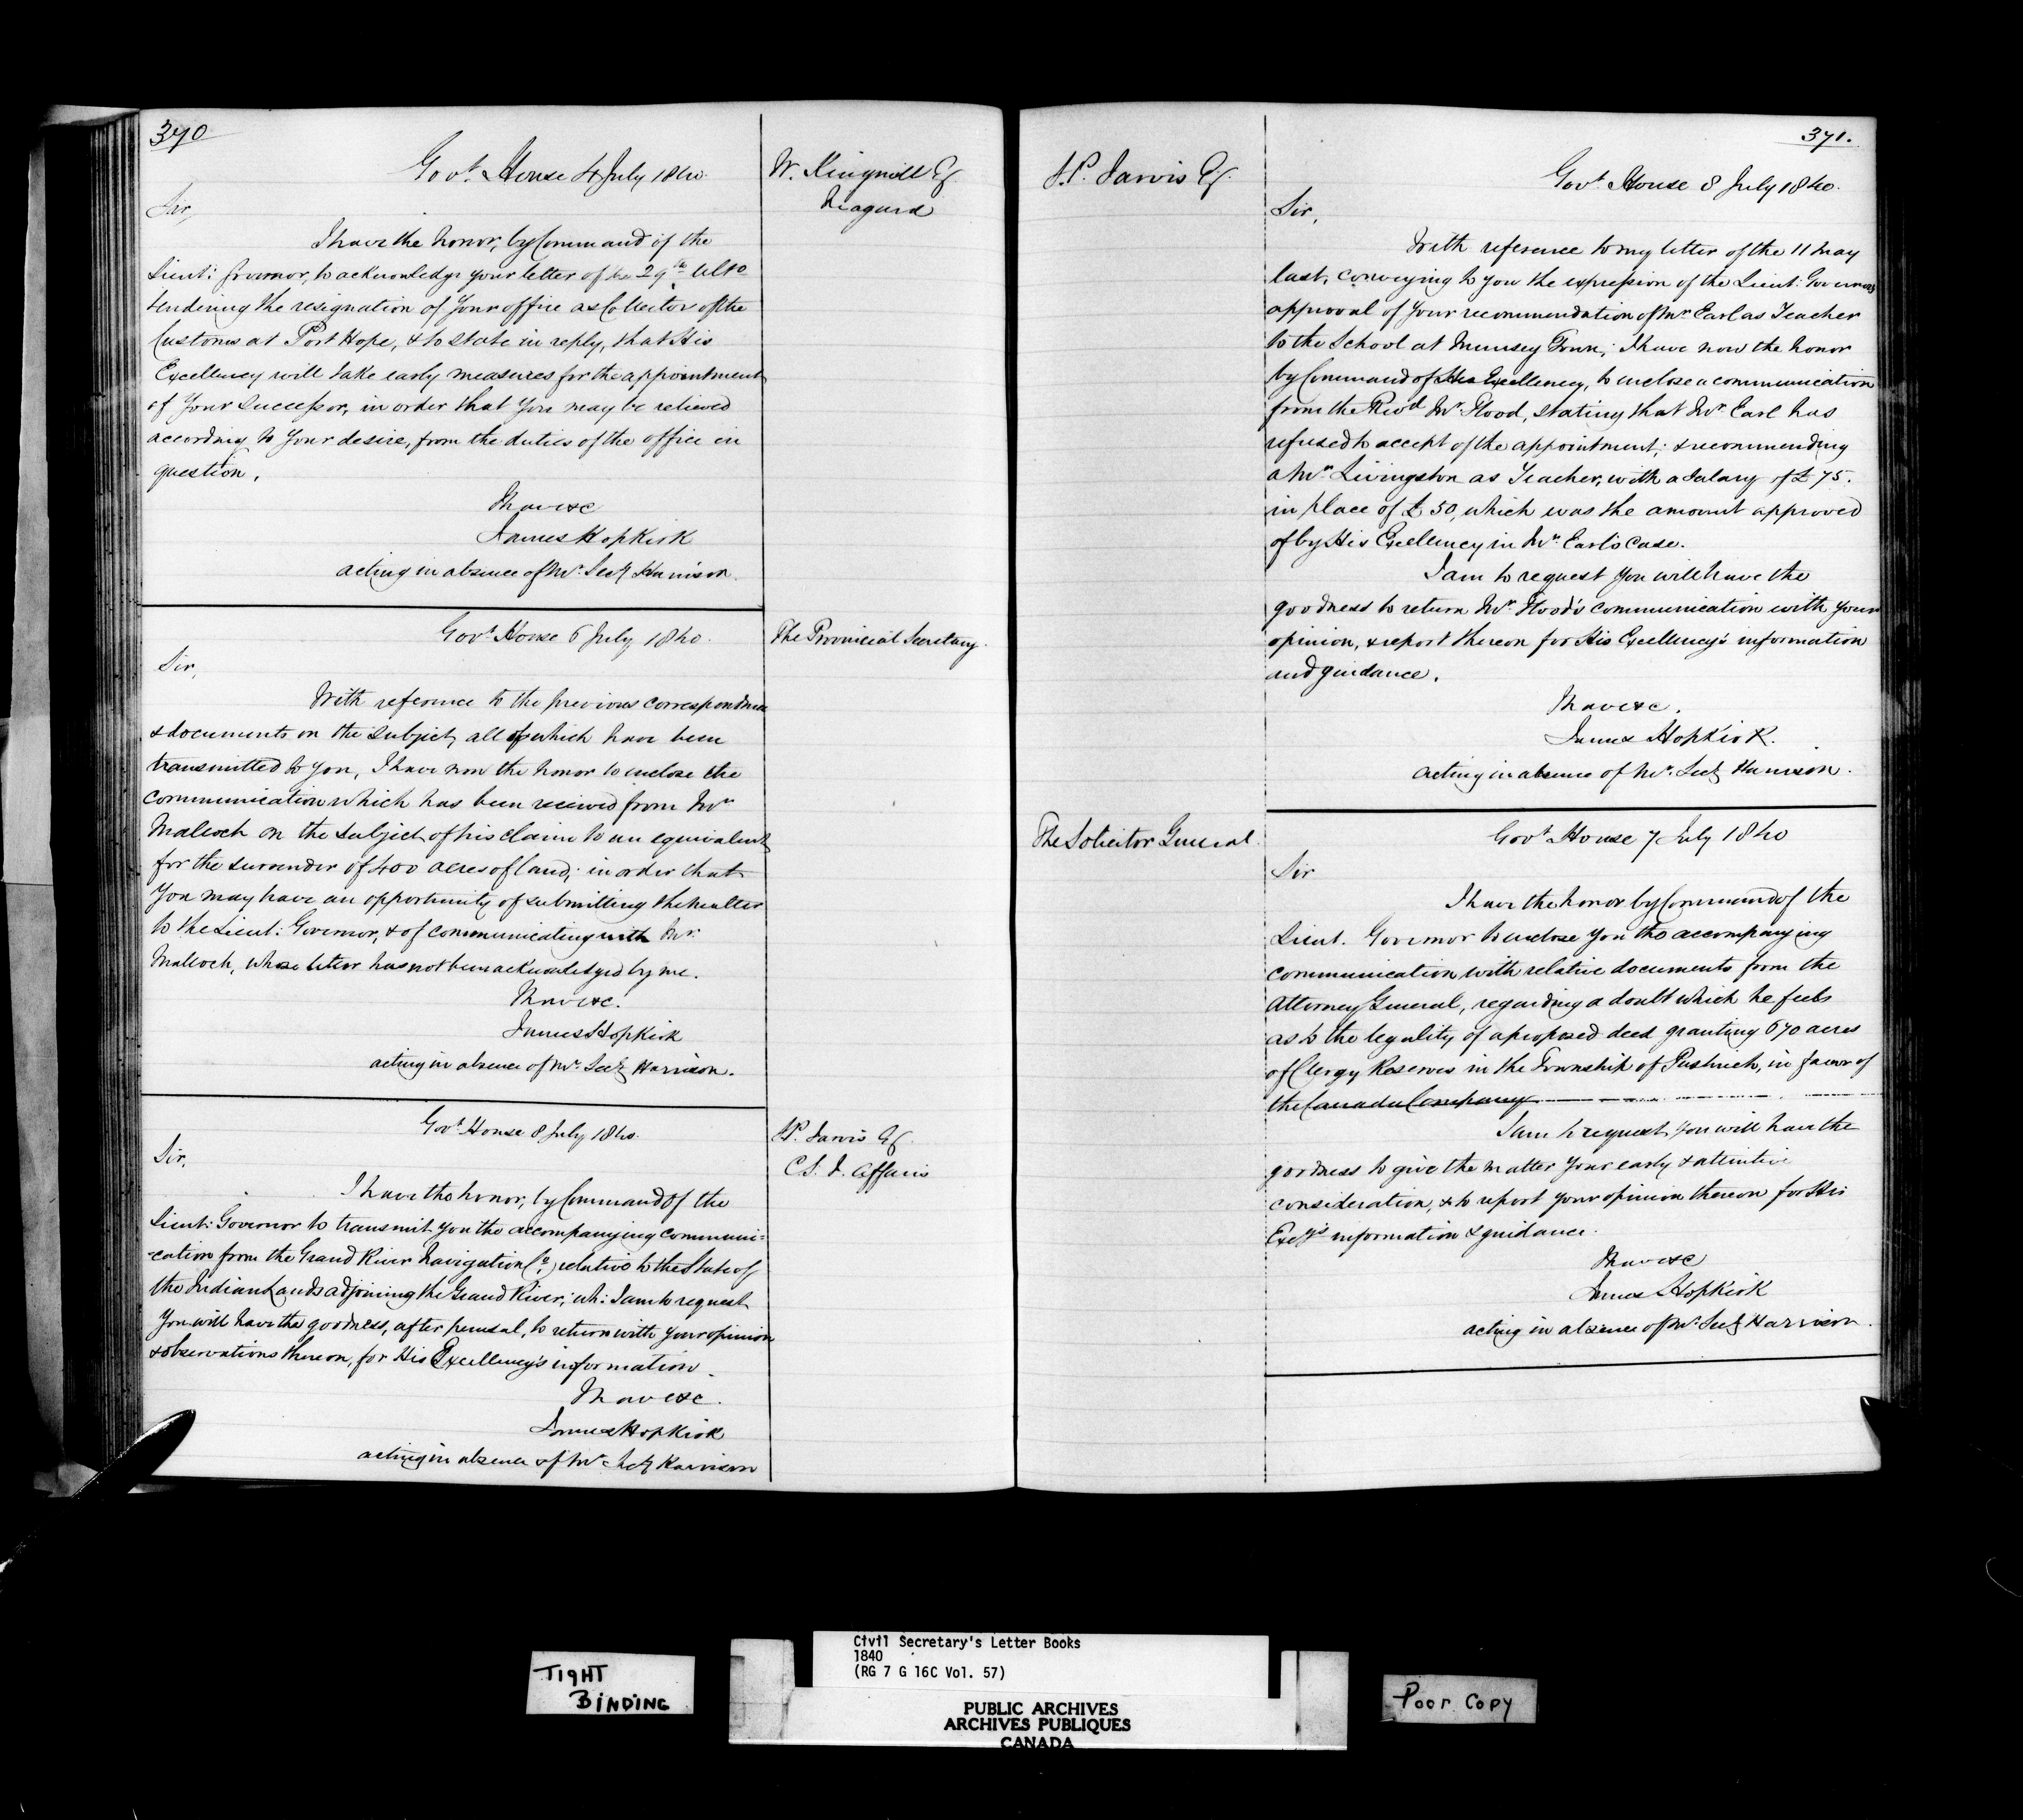 370
Govt. House 4 July 1840.
W. Kingsmill Esq
Niagara
Sir,
I have the honor, by Command of the
Lieut: Governor, to acknowledge your letter of the 29th Ulto
tendering the resignation of your office as Collector of the
Customs at Port Hope, & to state in reply, that His
Excellency will take early measures for the appointment
of your successor, in order that you may be relieved
according to your desire, from the duties of the office in
question.
I have &c
James Hopkirk
acting in absence of Mr. Secy Harrison.
Govt. House 6 July 1840.
The Provincial Secretary.
Sir,
With reference to the previous correspondence
& documents on the subject, all of which have been
transmitted to you, I have now the honor to inclose the
communication which has been received from Mr
Malloch on the subject of his claim to an equivalent
for the surrender of 400 acres of land; in order that
you may have an opportunity of submitting the matter
to the Lieut: Governor, & of communicating with Mr.
Malloch, whose letter has not been acknowledged by me.
I have &c.
James Hopkirk
acting in absence of Mr. Secy Harrison.
Govt. House 8 July 1840.
S.P. Jarvis Esq
C.S. I. Affairs
Sir,
I have the honor, by Command of the
Lieut: Governor to transmit you the accompanying communi=
=cation from the Grand River Navigation Co. relative to the State of
the Indian Lands adjoining the Grand River; wh: I am to request
you will have the goodness, after perusal, to return with your opinion
& observations thereon, for His Excellency's information.
I have &c.
James Hopkirk
acting in absence of Mr. Secy Harrison
371.
S.P. Jarvis Esq.
Govt. House 8 July 1840.
Sir,
With reference to my letter of the 11 May
last, conveying to you the expression of the Lieut: Governors
approval of your recommendation of Mr. Earl as Teacher
to the School at Munsey Town; I have now the honor
by Command of His Excellency, to inclose a communication
from the Revd Mr. Flood, stating that Mr. Earl has
refused to accept of the appointment; & recommending
a Mr. Livingston as Teacher, with a salary of £75.
in place of £50, which was the amount approved
of by His Excellency in Mr. Earl's case.
I am to request you will have the
goodness to return Mr. Flood's communication with your
opinion, & report thereon for His Excellency's information
and guidance.
I have &c.
James Hopkirk.
acting in absence of Mr. Secy Harrison.
The Solicitor General.
Govt. House 7 July 1840
Sir
I have the honor by Command of the
Lieut. Governor to inclose you the accompanying
communication with relative documents from the
Attorney General, regarding a doubt which he feels
as to the legality of a proposed deed granting 670 acres
of Clergy Reserves in the Township of Puslinch, in favor of
the Canada Company
I am to request you will have the
goodness to give the matter your early & attentive
consideration, & to report your opinion thereon for His
Excy's information & guidance.
I have &c
James Hopkirk
acting in absence of Mr. Secy Harrison.
TIGHT
BINDING
Civil Secretary's Letter Books
1840
(RG 7 G 16C Vol. 57)
PUBLIC ARCHIVES
ARCHIVES PUBLIQUES
CANADA
Poor Copy